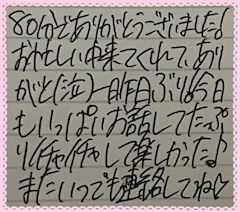 80分でありがとうございました!
お忙しい中来てくれて、あり
がと(泣)一昨日ぶりの今日
もいっぱいお話してたっぷ
りイチャイチャして楽しかった♪
またいつでも連絡してね♡